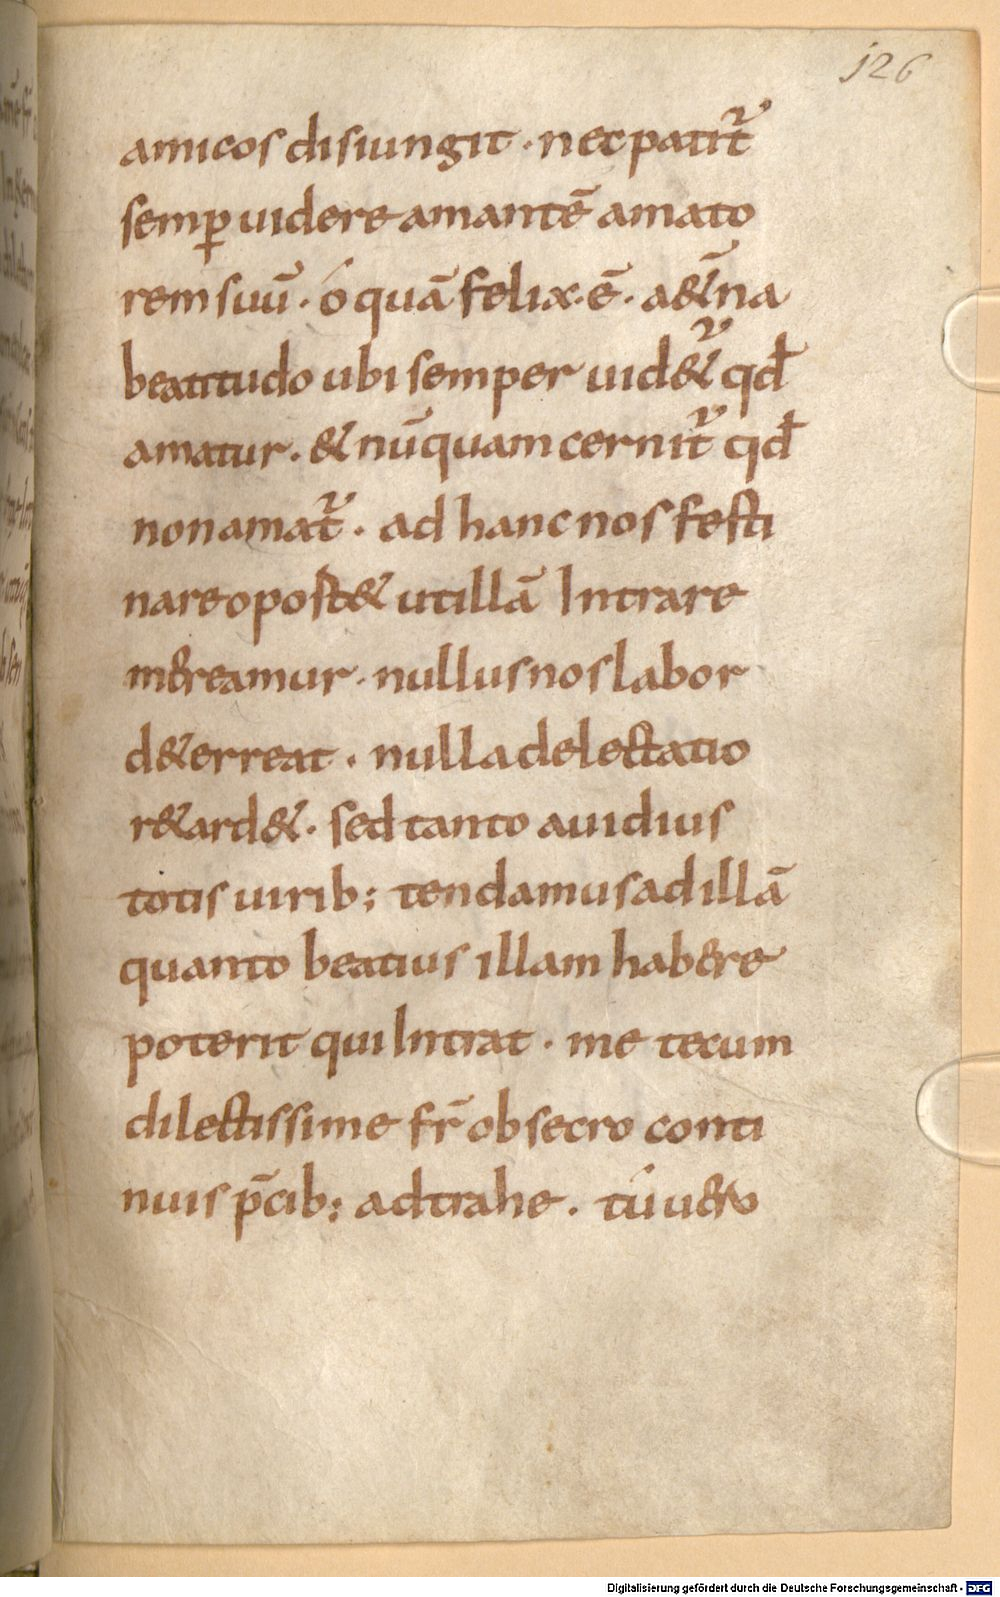 126
amicos disiungit · nec patit᷑
semꝑ uidere amantē amato
rem suū · ó quā felix · ē · a&̄na
beatitudo ubi semper uid&᷑ qđ
amatur · & nūquam cernit᷑ qđ
non amat᷑ · ad hanc nos festi
nare oport& ut illā Intrare
mereamur · nullus nos labor
d&erreat · nulla delectatio
r&ard& · sed tanto auidius
totis uirib; tendamus ad illā
quanto beatius illam habere
poterit qui Intrat · me tecum
dilectissime fr̄ obsecro conti
nuis p̄cib; adtrahe · tú uero
Digitalisierung gefördert durch die Deutsche Forschungsgemeinschaft - DFG